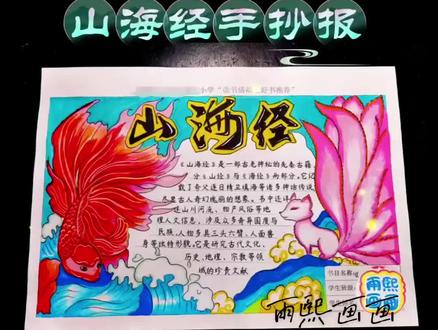 山海经手抄报
小学“读书
好书推荐”
山海经
《山海经》是一部古老神秘的先秦古籍
分《山经》与《海经》两部分，它记
载了夸父逐日精卫填海等诸多神话传说
尽显古人奇幻瑰丽的想象。书中还详
述山川河流、物产风俗等地
理人文信息，涉及众多奇异国度与
民族，人物多具三头六臂、人面兽
身等独特形貌，它是研究古代文化、
历史、地理、宗教等领
域的珍贵文献
书目名称：
学生班级：
雨熙
画画
雨熙画画